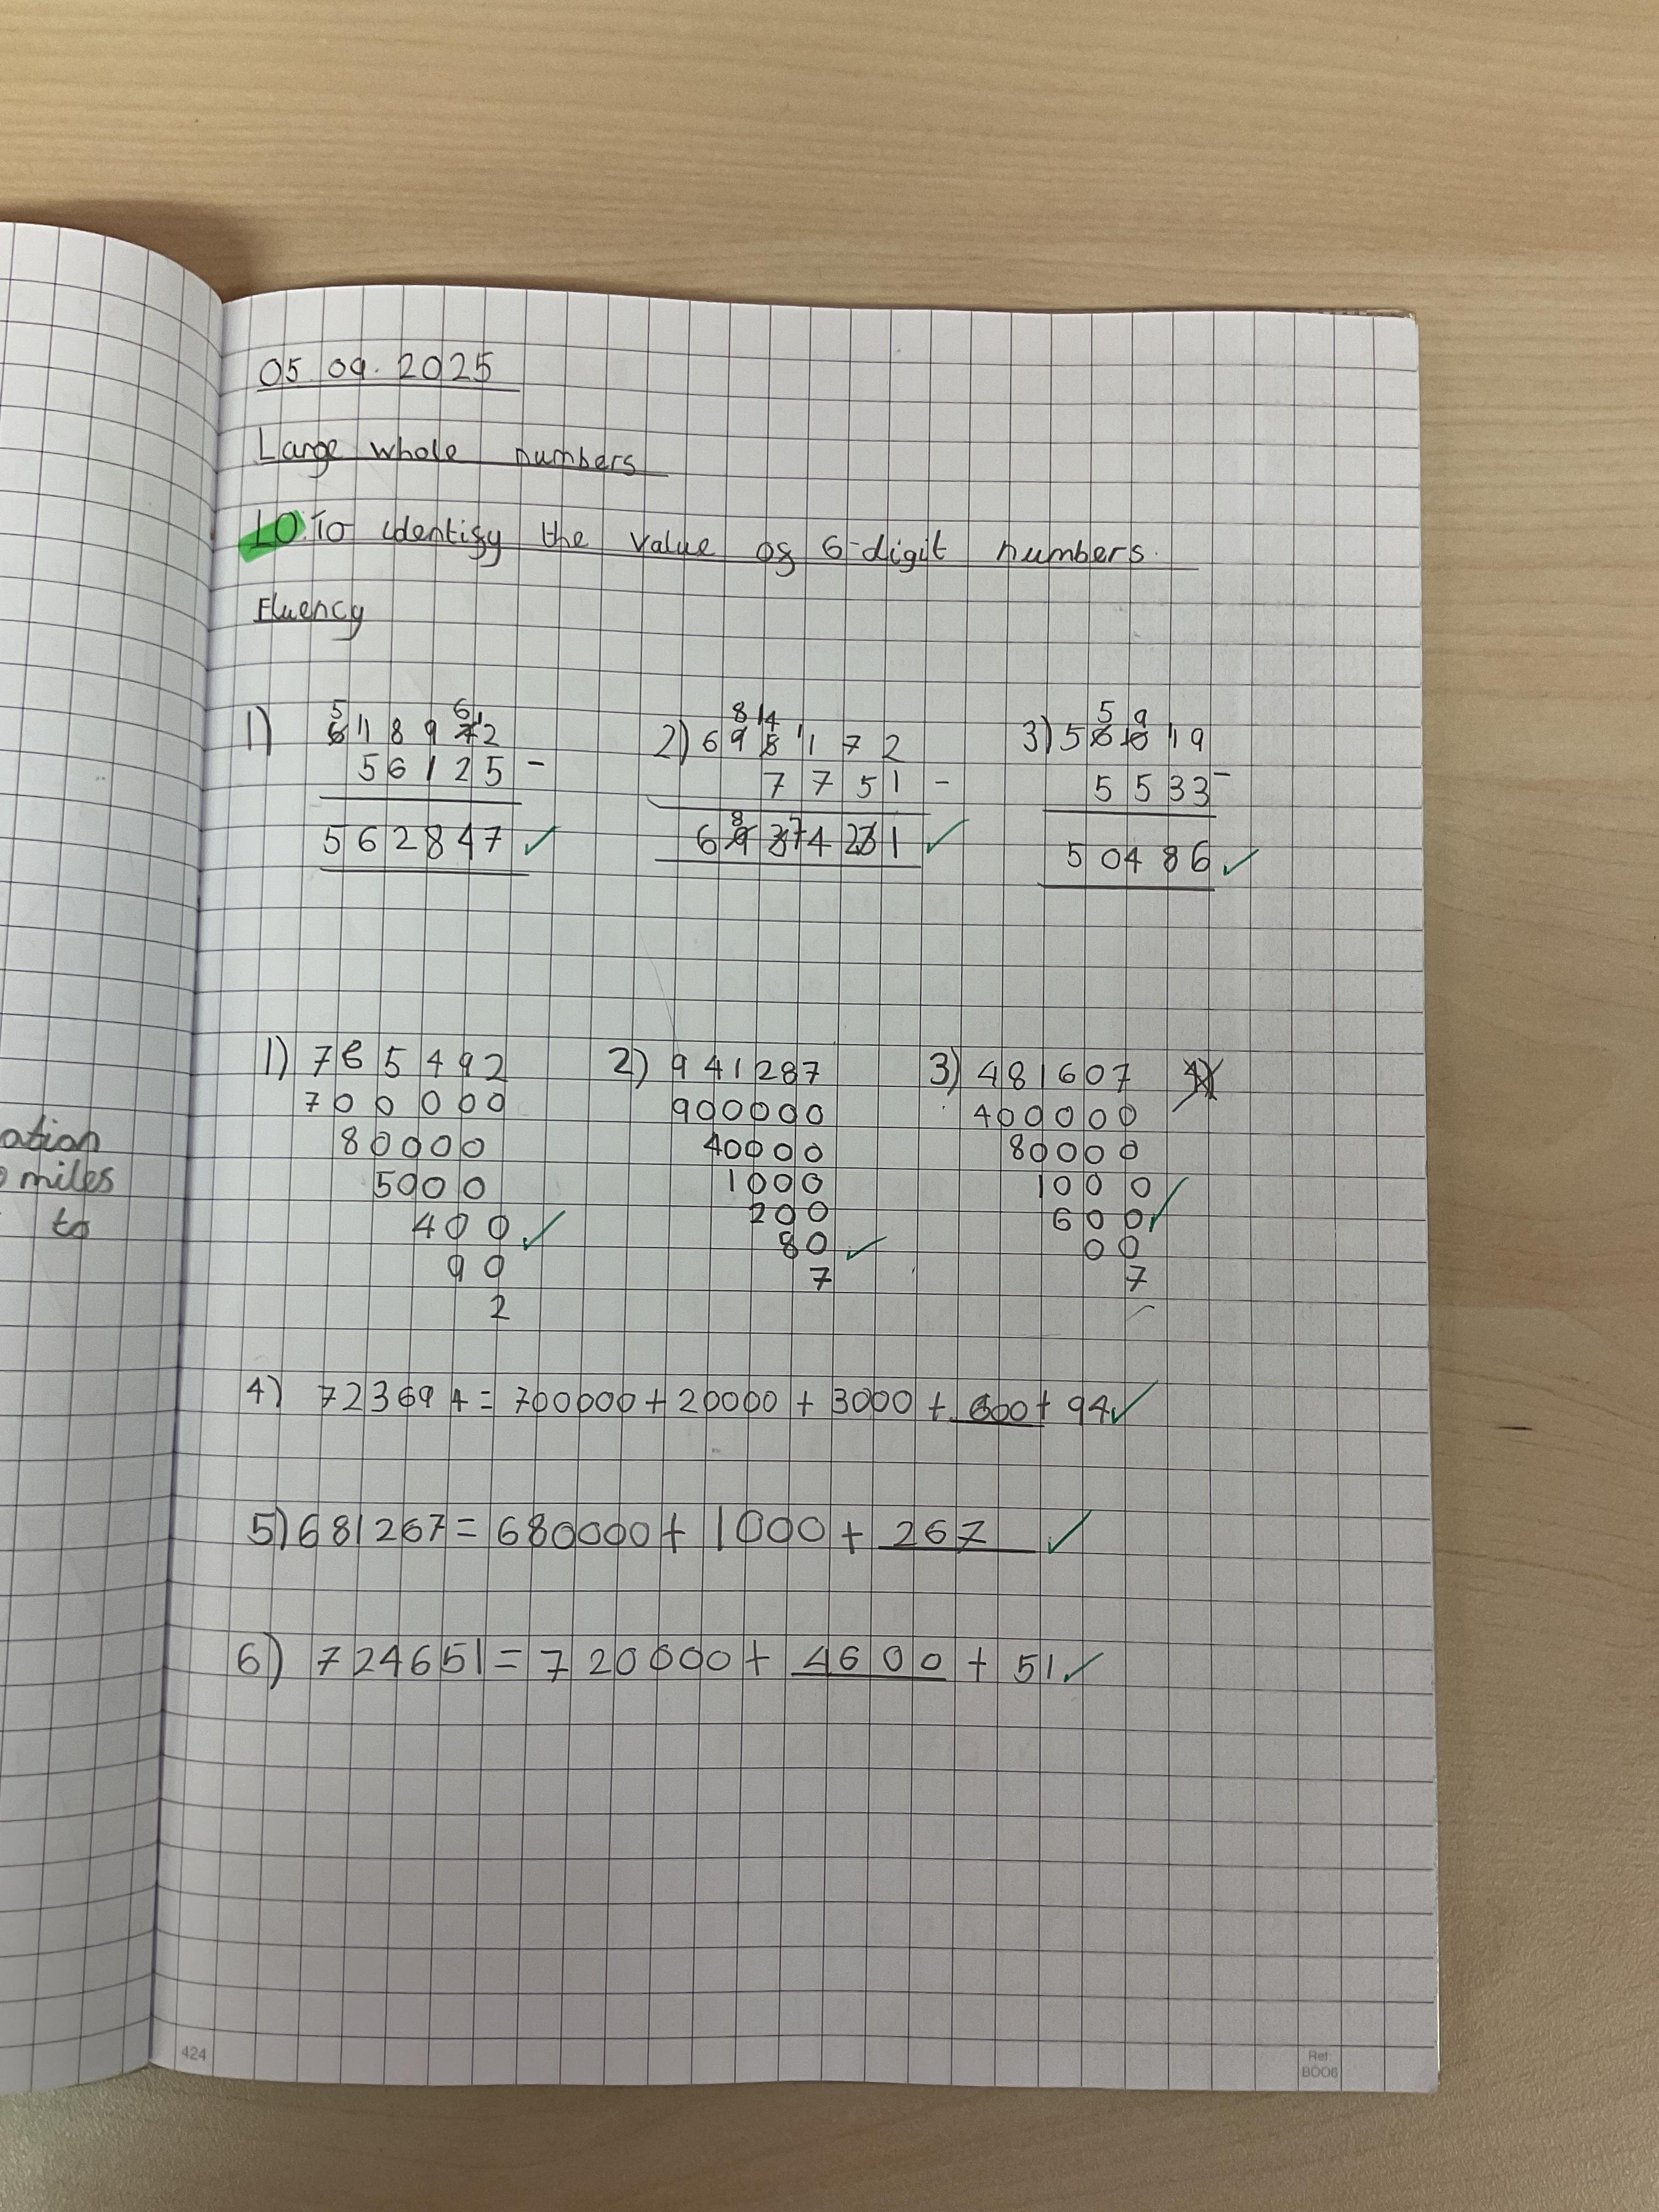 05.09.2025
Large whole numbers
LO: To identify the value of 6-digit numbers.
Fluency
1) 618972
56125 -
562847 ✓
2) 695172
7751 -
687421 ✓
3) 56019
5533 -
50486 ✓
1) 785492
700000
80000
5000
400 ✓
90
2
2) 941287
900000
40000
1000
200
80 ✓
7
3) 481607
400000
80000
1000
600 ✓
00
7
4) 723694 = 700000 + 20000 + 3000 + 600 + 94 ✓
5) 681267 = 680000 + 1000 + 267 ✓
6) 724651 = 720000 + 4600 + 51 ✓
ation
miles
to
424
Ref:
BOO6